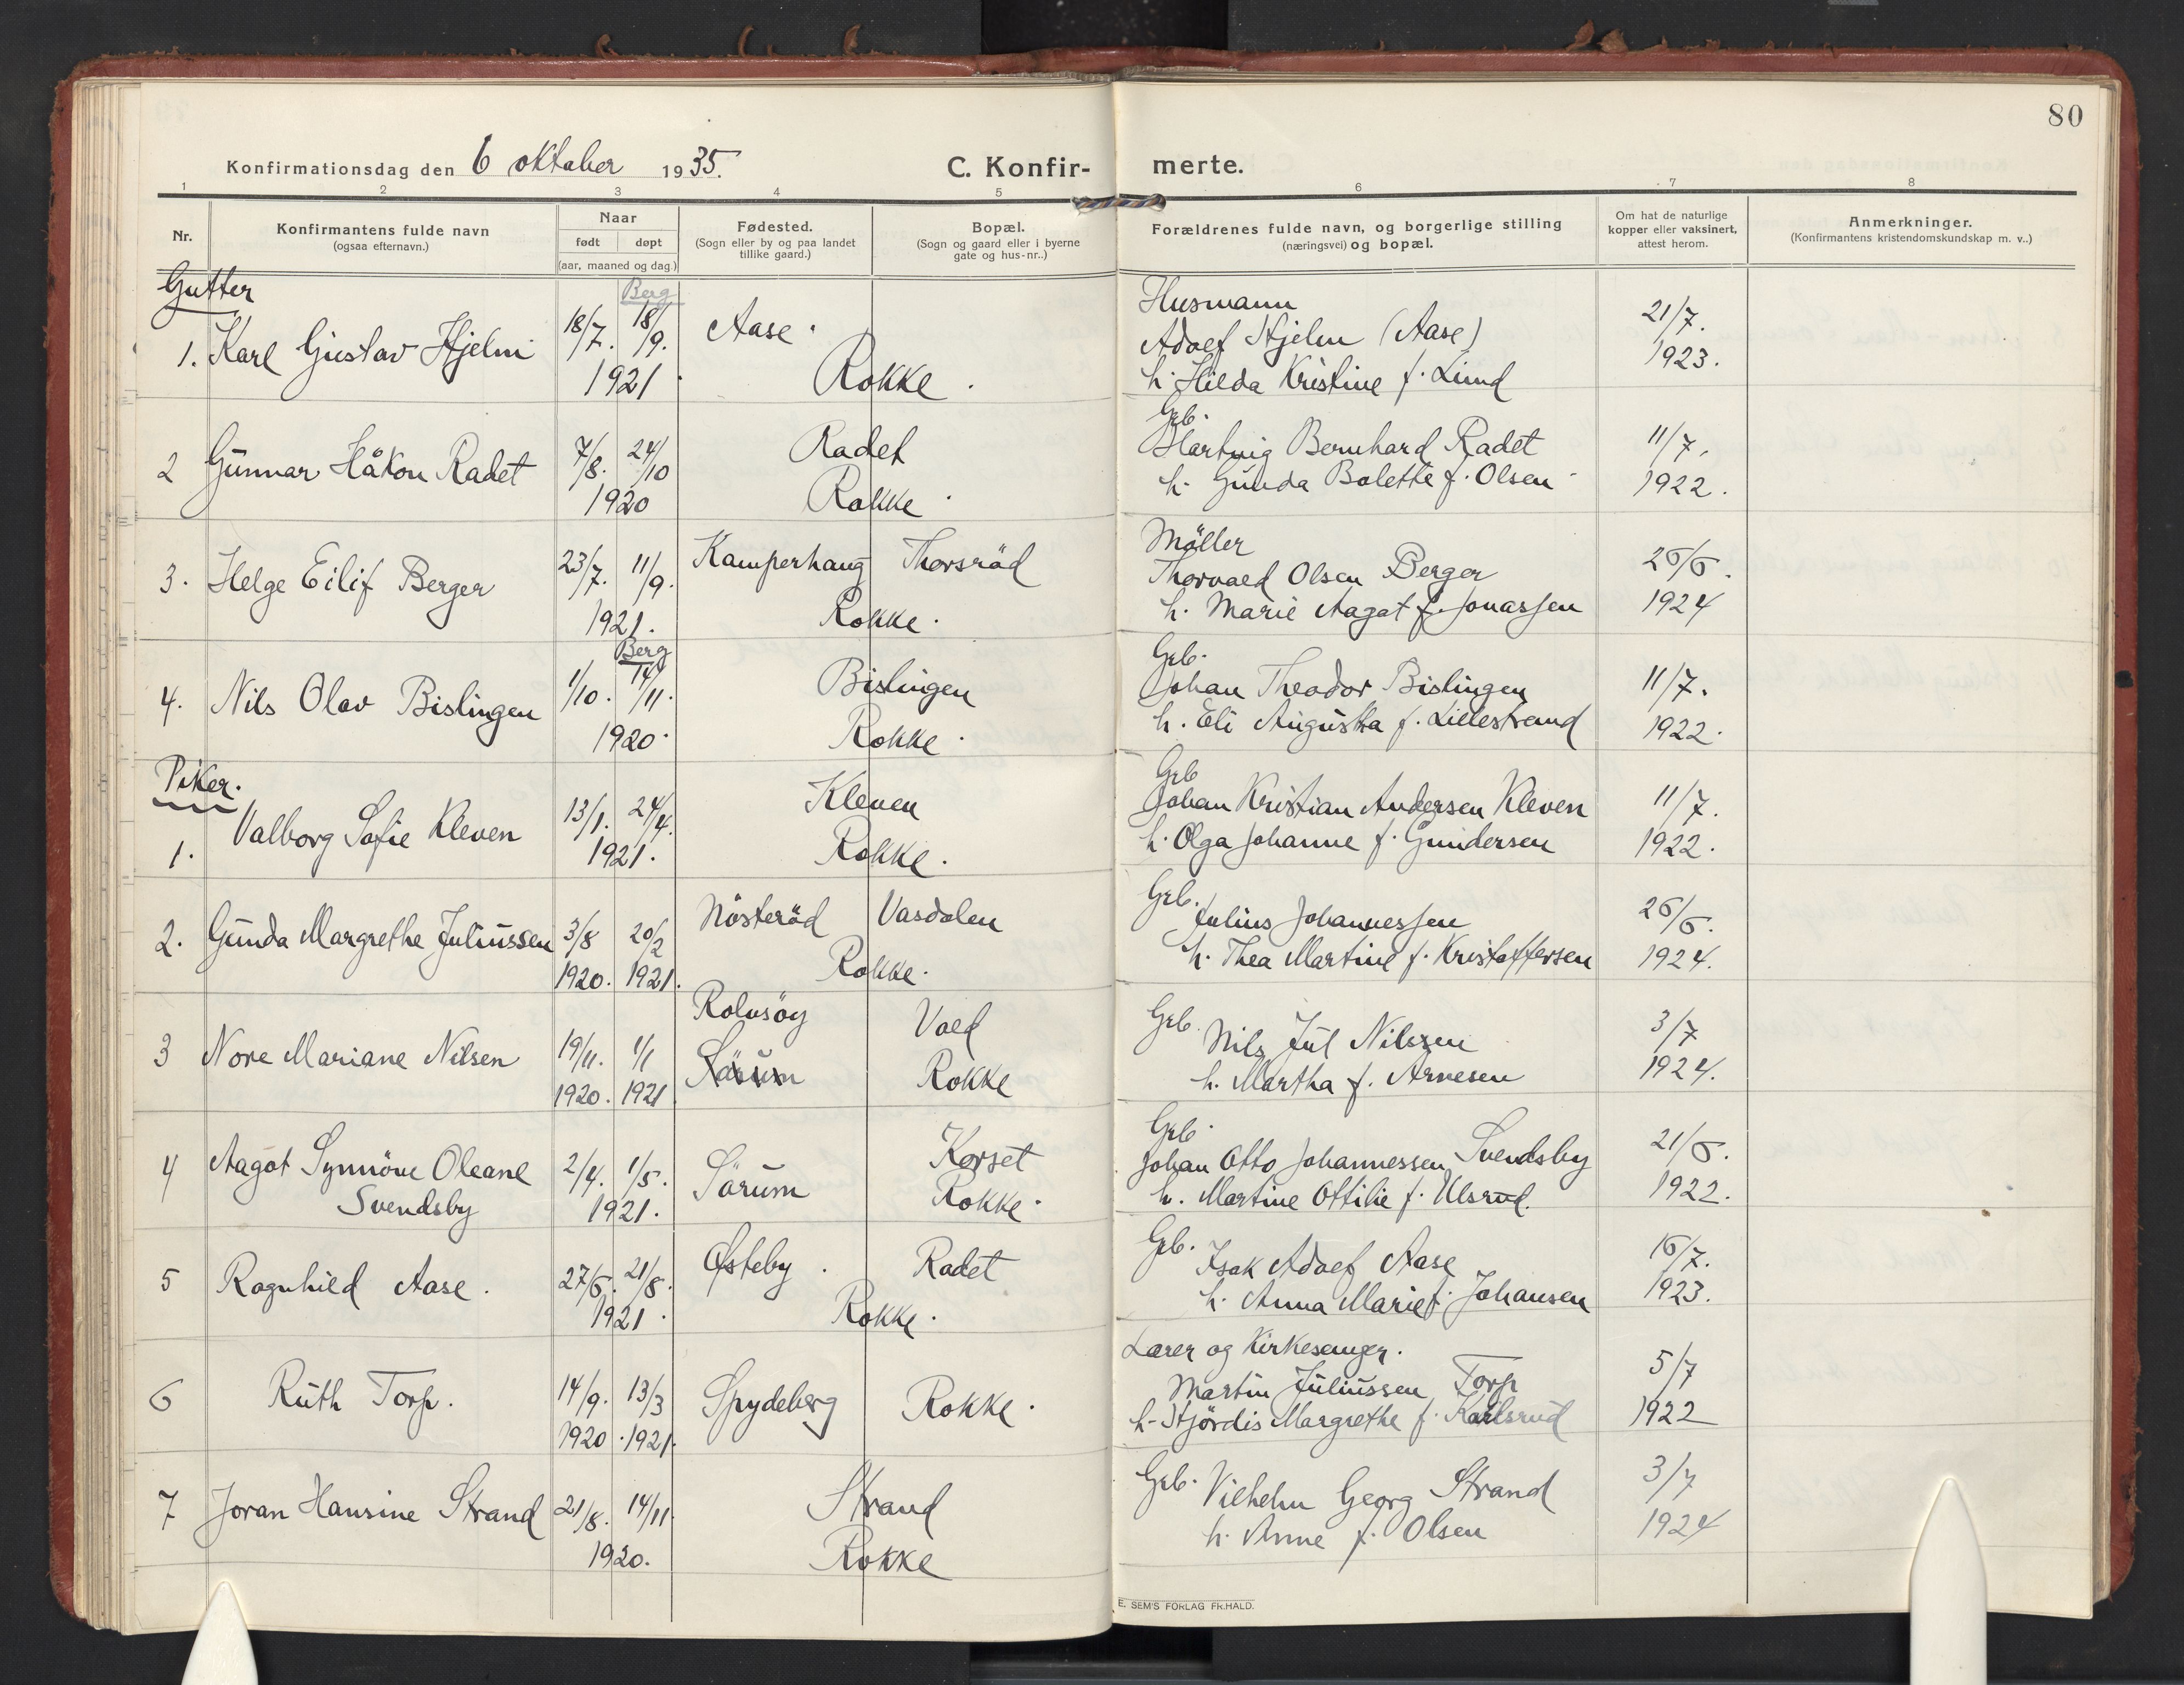 80
Konfirmationsdag den 6 oktober 1935.
C. Konfir- merte.
1 2 3 4 5 6 7 8
Nr.
Konfirmantens fulde navn
(ogsaa efternavn.)
Naar
født døpt
(aar, maaned og dag.)
Fødested.
(Sogn eller by og paa landet
tillike gaard.)
Bopæl.
(Sogn og gaard eller i byerne
gate og hus-nr..)
Forældrenes fulde navn, og borgerlige stilling
(næringsvei) og bopæl.
Om hat de naturlige
kopper eller vaksinert,
attest herom.
Anmerkninger.
(Konfirmantens kristendomskundskap m. v..)
Gutter
Berg
Husmann
1. Karl Gustav Hjelm 18/7. 18/9. Aase. Adolf Hjelm (Aase) 21/7.
1921. Rokke. h. Hilda Kristine f. Lund 1923.
Grb.
2 Gunnar Håkon Radet 7/8. 24/10 Radet Hartvig Bernhard Radet 11/7.
1920 Rokke. h. Gunda Bolette f. Olsen 1922.
Möller
3. Helge Eilif Berger 23/7. 11/9. Kamperhaug Thorsröd Thorvald Olsen Berger 26/6.
1921. Rokke. h. Marie Aagot f. Jonassen 1924
Berg
Grb.
4. Nils Olav Bislingen 1/10. 14/11. Bislingen Johan Theodor Bislingen 11/7.
1920. Rokke. h. Eli Augusta f. Lillestrand 1922.
Piker.
Grb
1. Valborg Sofie Kleven 13/1. 24/4. Kleven Johan Kristian Andersen Kleven 11/7.
1921. Rokke. h. Olga Johanne f. Gundersen 1922.
Grb.
2. Gunda Margrethe Juliussen 3/8 20/2 Nösteröd Vasdalen Julius Johannessen 26/6.
1920. 1921. Rokke. h. Thea Martine f. Kristoffersen 1924.
Rolvsöy Vold Grb.
3 Nore Mariane Nilsen 19/11. 1/1 Nils Jul Nilssen 3/7
1920. 1921 Särum Rokke h. Martha f. Arnesen 1924.
Korset Grb.
4 Aagot Synnöve Oleane 2/4. 1/5. Särum Johan Otto Johannessen Svendsby 21/6.
Svendsby 1921. Rokke. h. Martine Ottilie f. Ulsrud. 1922.
Grb.
5 Ragnhild Aase. 27/6. 21/8. Østeby. Radet Isak Adolf Aase 16/7.
1921. Rokke. h. Anna Marie f. Johansen 1923.
Lærer og Kirkesanger.
6 Ruth Torp. 14/9. 13/3 Spydeberg Rokke. Martin Juliussen Torp 5/7
1920. 1921. h. Hjördis Margrethe f. Karlsrud 1922
7 Joran Hansine Strand 21/8. 14/11. Strand Grb. Vilhelm Georg Strand 3/7
1920. Rokke h. Anne f. Olsen 1924
E. SEM'S FORLAG FR.HALD.